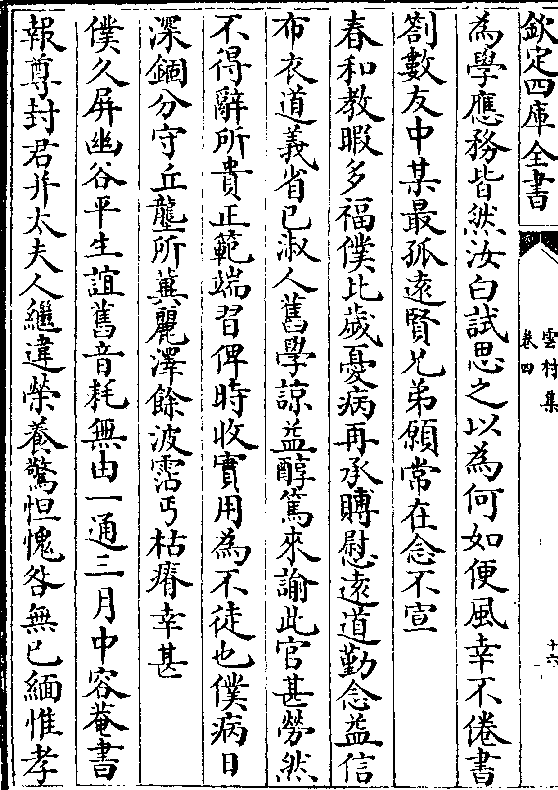 欽定四庫全書
雲村集
卷四
十六
為學應務皆然汝白試思之以為何如便風幸不倦書
劄數友中某最孤遠賢兄弟願常在念不宣
春和教暇多福僕比歲憂病再承賻慰遠道勤念益信
布衣道義省已淑人舊學諒益醇篤來諭此官甚勞然
不得辭所貴正範端習俾時收實用為不徒也僕病日
深錮分守丘壟所冀麗澤餘波霑丐枯瘠幸甚
僕久屏幽谷平生誼舊音耗無由一通三月中容菴書
報尊封君并太夫人繼違榮養驚怛愧咎無已緬惟孝